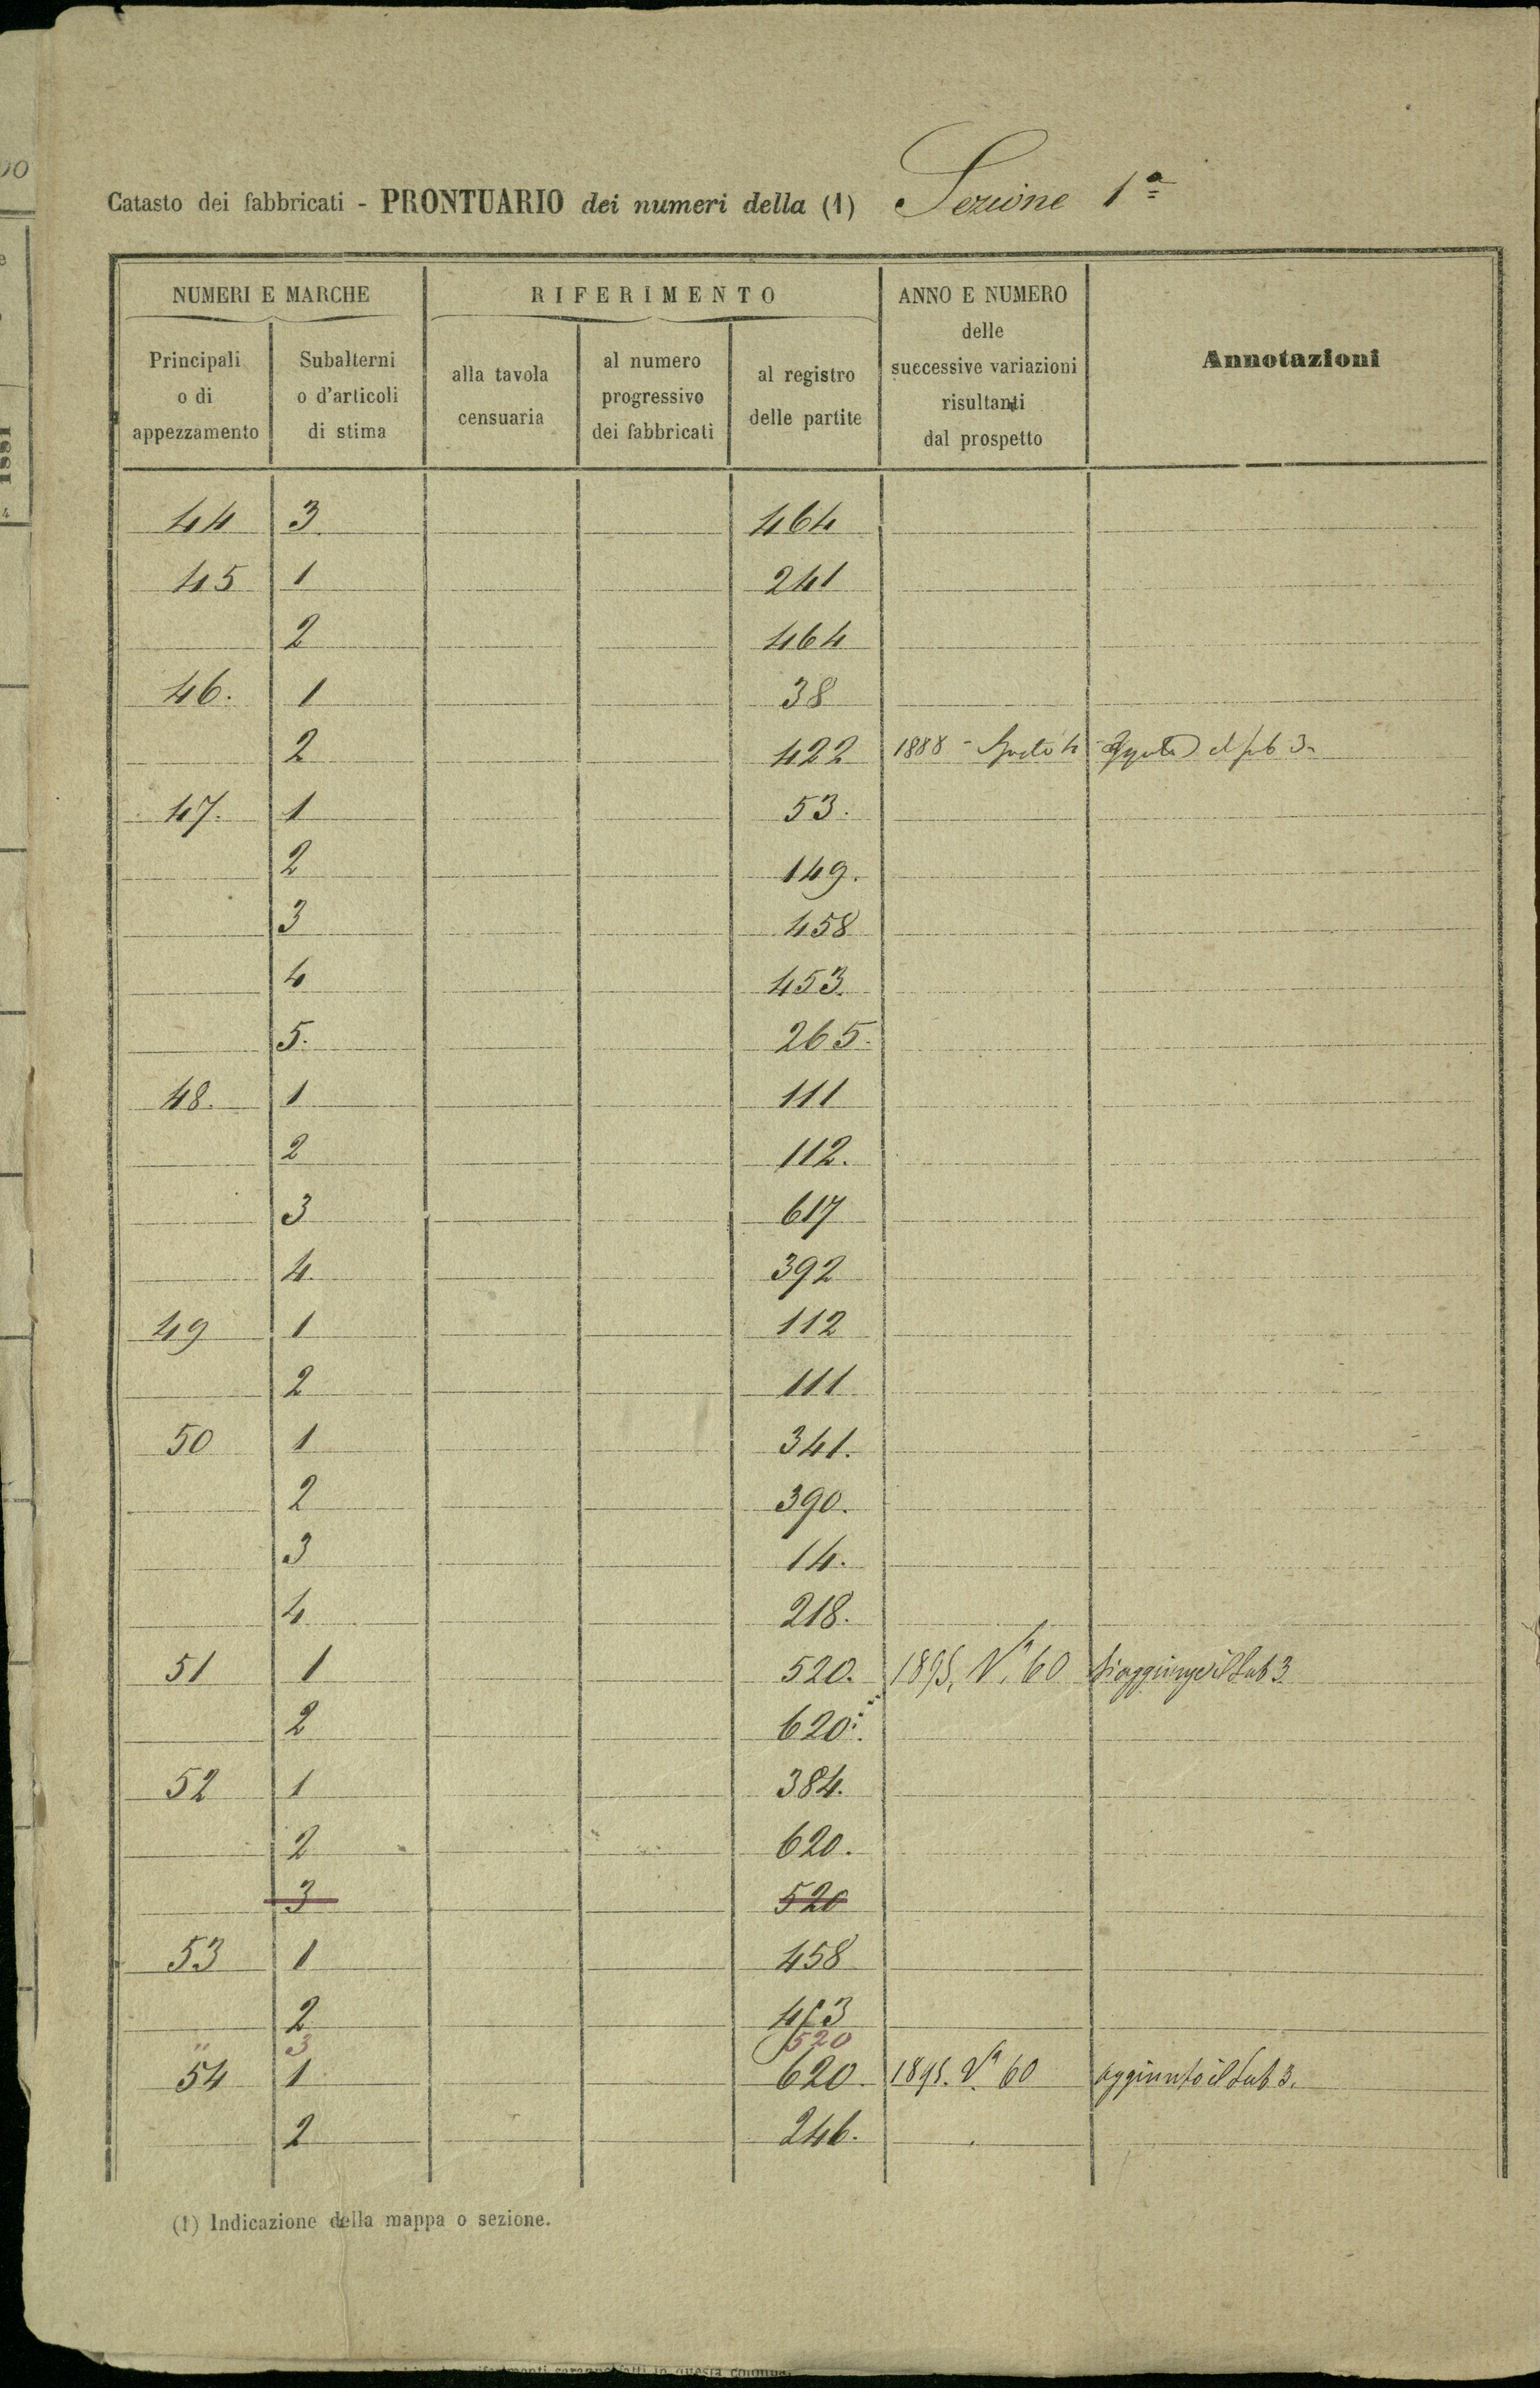 Catasto dei fabbricati - PRONTUARIO dei numeri della (1) Sezione 1ª
NUMERI E MARCHE
Principali o di appezzamento
Subalterni o d'articoli di stima
RIFERIMENTO
alla tavola censuaria
al numero progressivo dei fabbricati
al registro delle partite
ANNO E NUMERO delle successive variazioni risultanti dal prospetto
Annotazioni
44 3. 464
45 1 241
2 464
46. 1 38
2 422 1888 - sub 3
47. 1 53.
2 149.
3 458
4 453.
5. 265.
48. 1 111
2 112.
3 617
4. 392
49 1 112
2 111
50 1 341.
2 390.
3 14.
4 218.
51 1 520. 1895, N.º 60 Si aggiunge il Sub 3
2 620.
52 1 384.
2 620.
3 520
53 1 458
2 453
" 3 520
54 1 620 1895. N.º 60 aggiunto il Sub 3.
2 246.
(1) Indicazione della mappa o sezione.